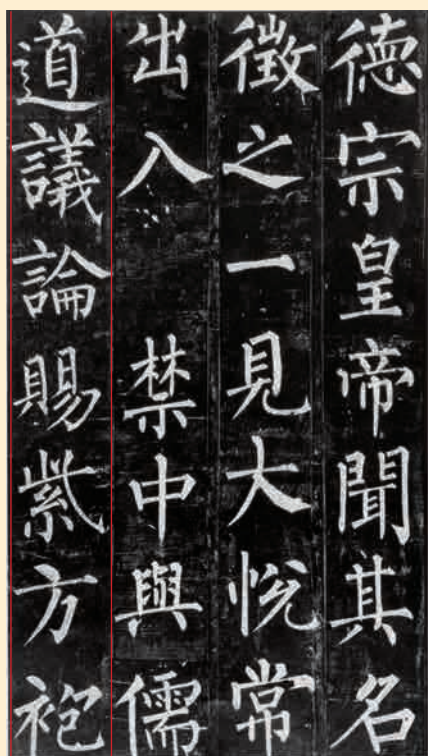 德宗皇帝聞其名
徵之一見大悅常
出入禁中與儒
道議論賜紫方袍